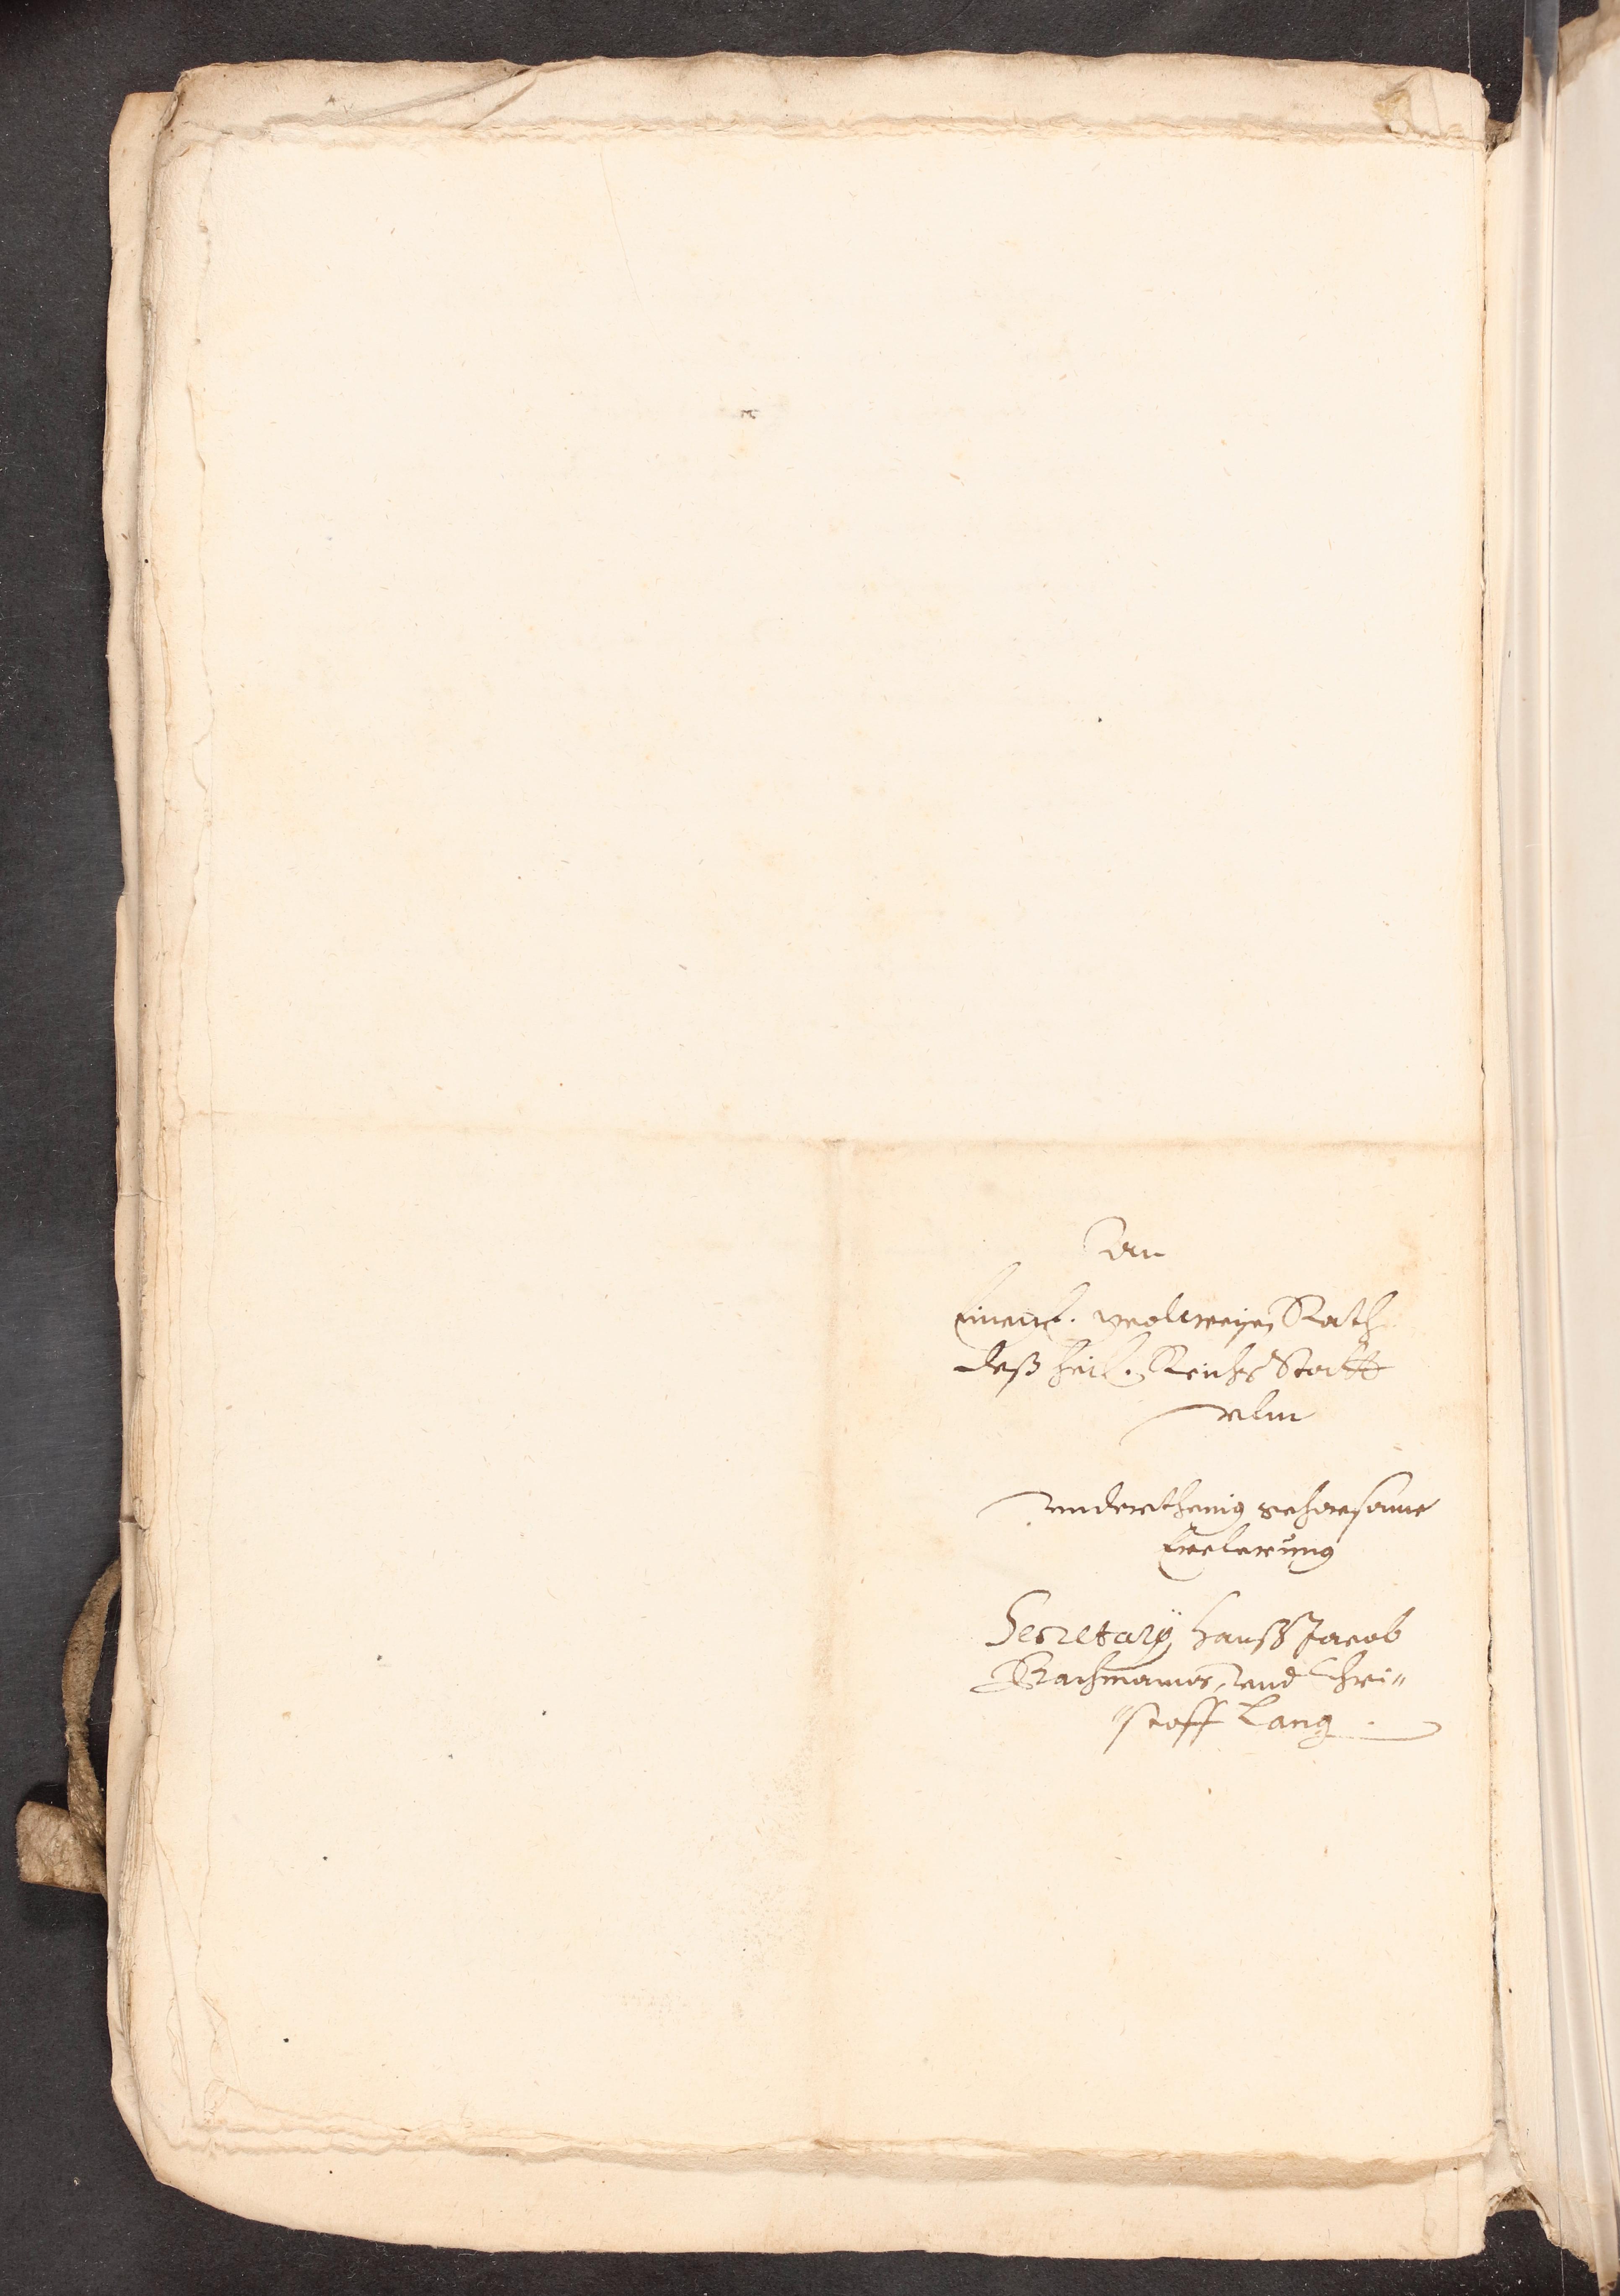 An
Einen E. wolweisen Rath
deß heil. Reichs Statt
Vlm
Vnderthenig gehorsame
Erclerung
Secretarÿ Hanß Jacob
Bachmanns, vnd Chri"
"stoff Lang.